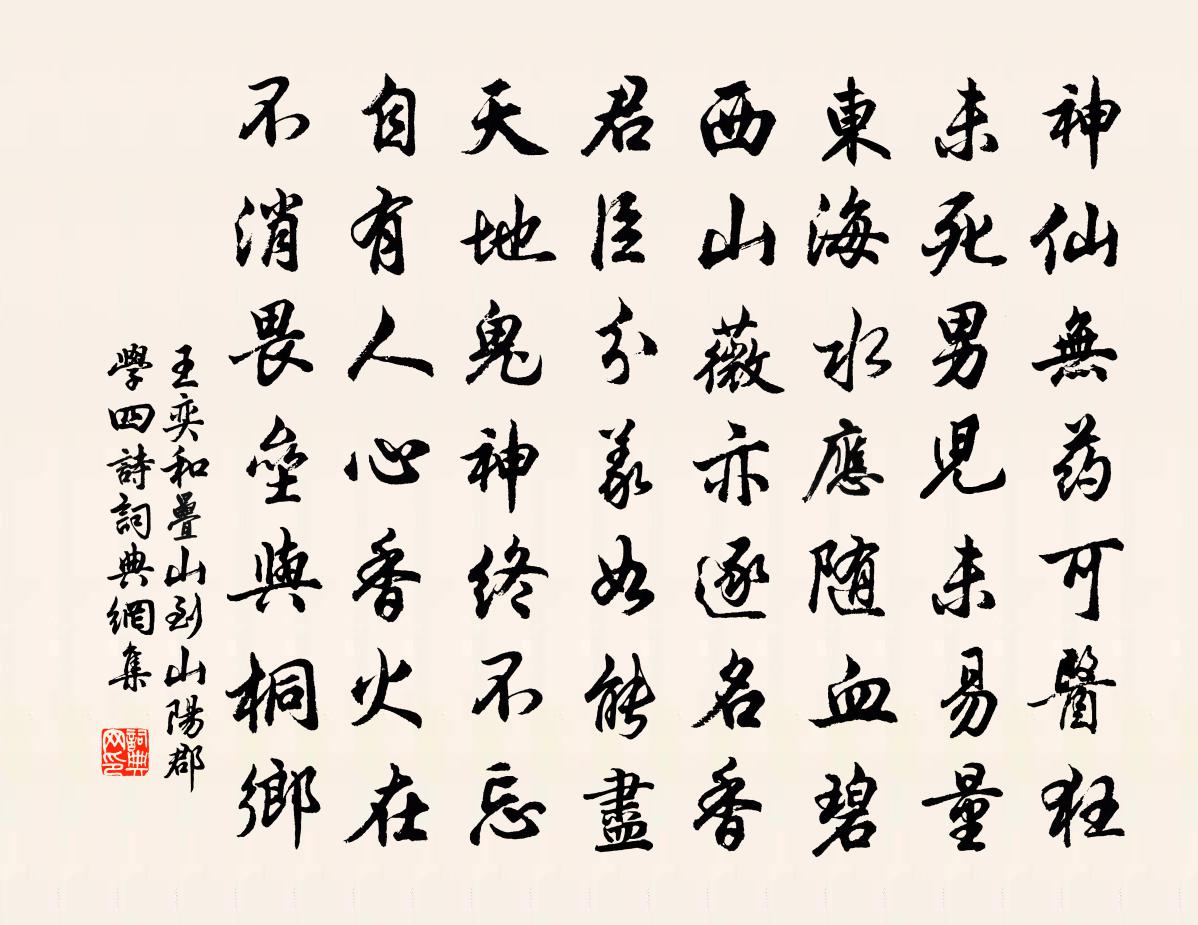 神仙無药可醫狂
未死男児未易量
東海水應随血碧
西山薇亦逐名香
君臣分義如能盡
天地鬼神終不忘
自有人心香火在
不消畏壘與桐鄉
王奕和疊山到山陽郡
學四詩詞典網集
詞典网印